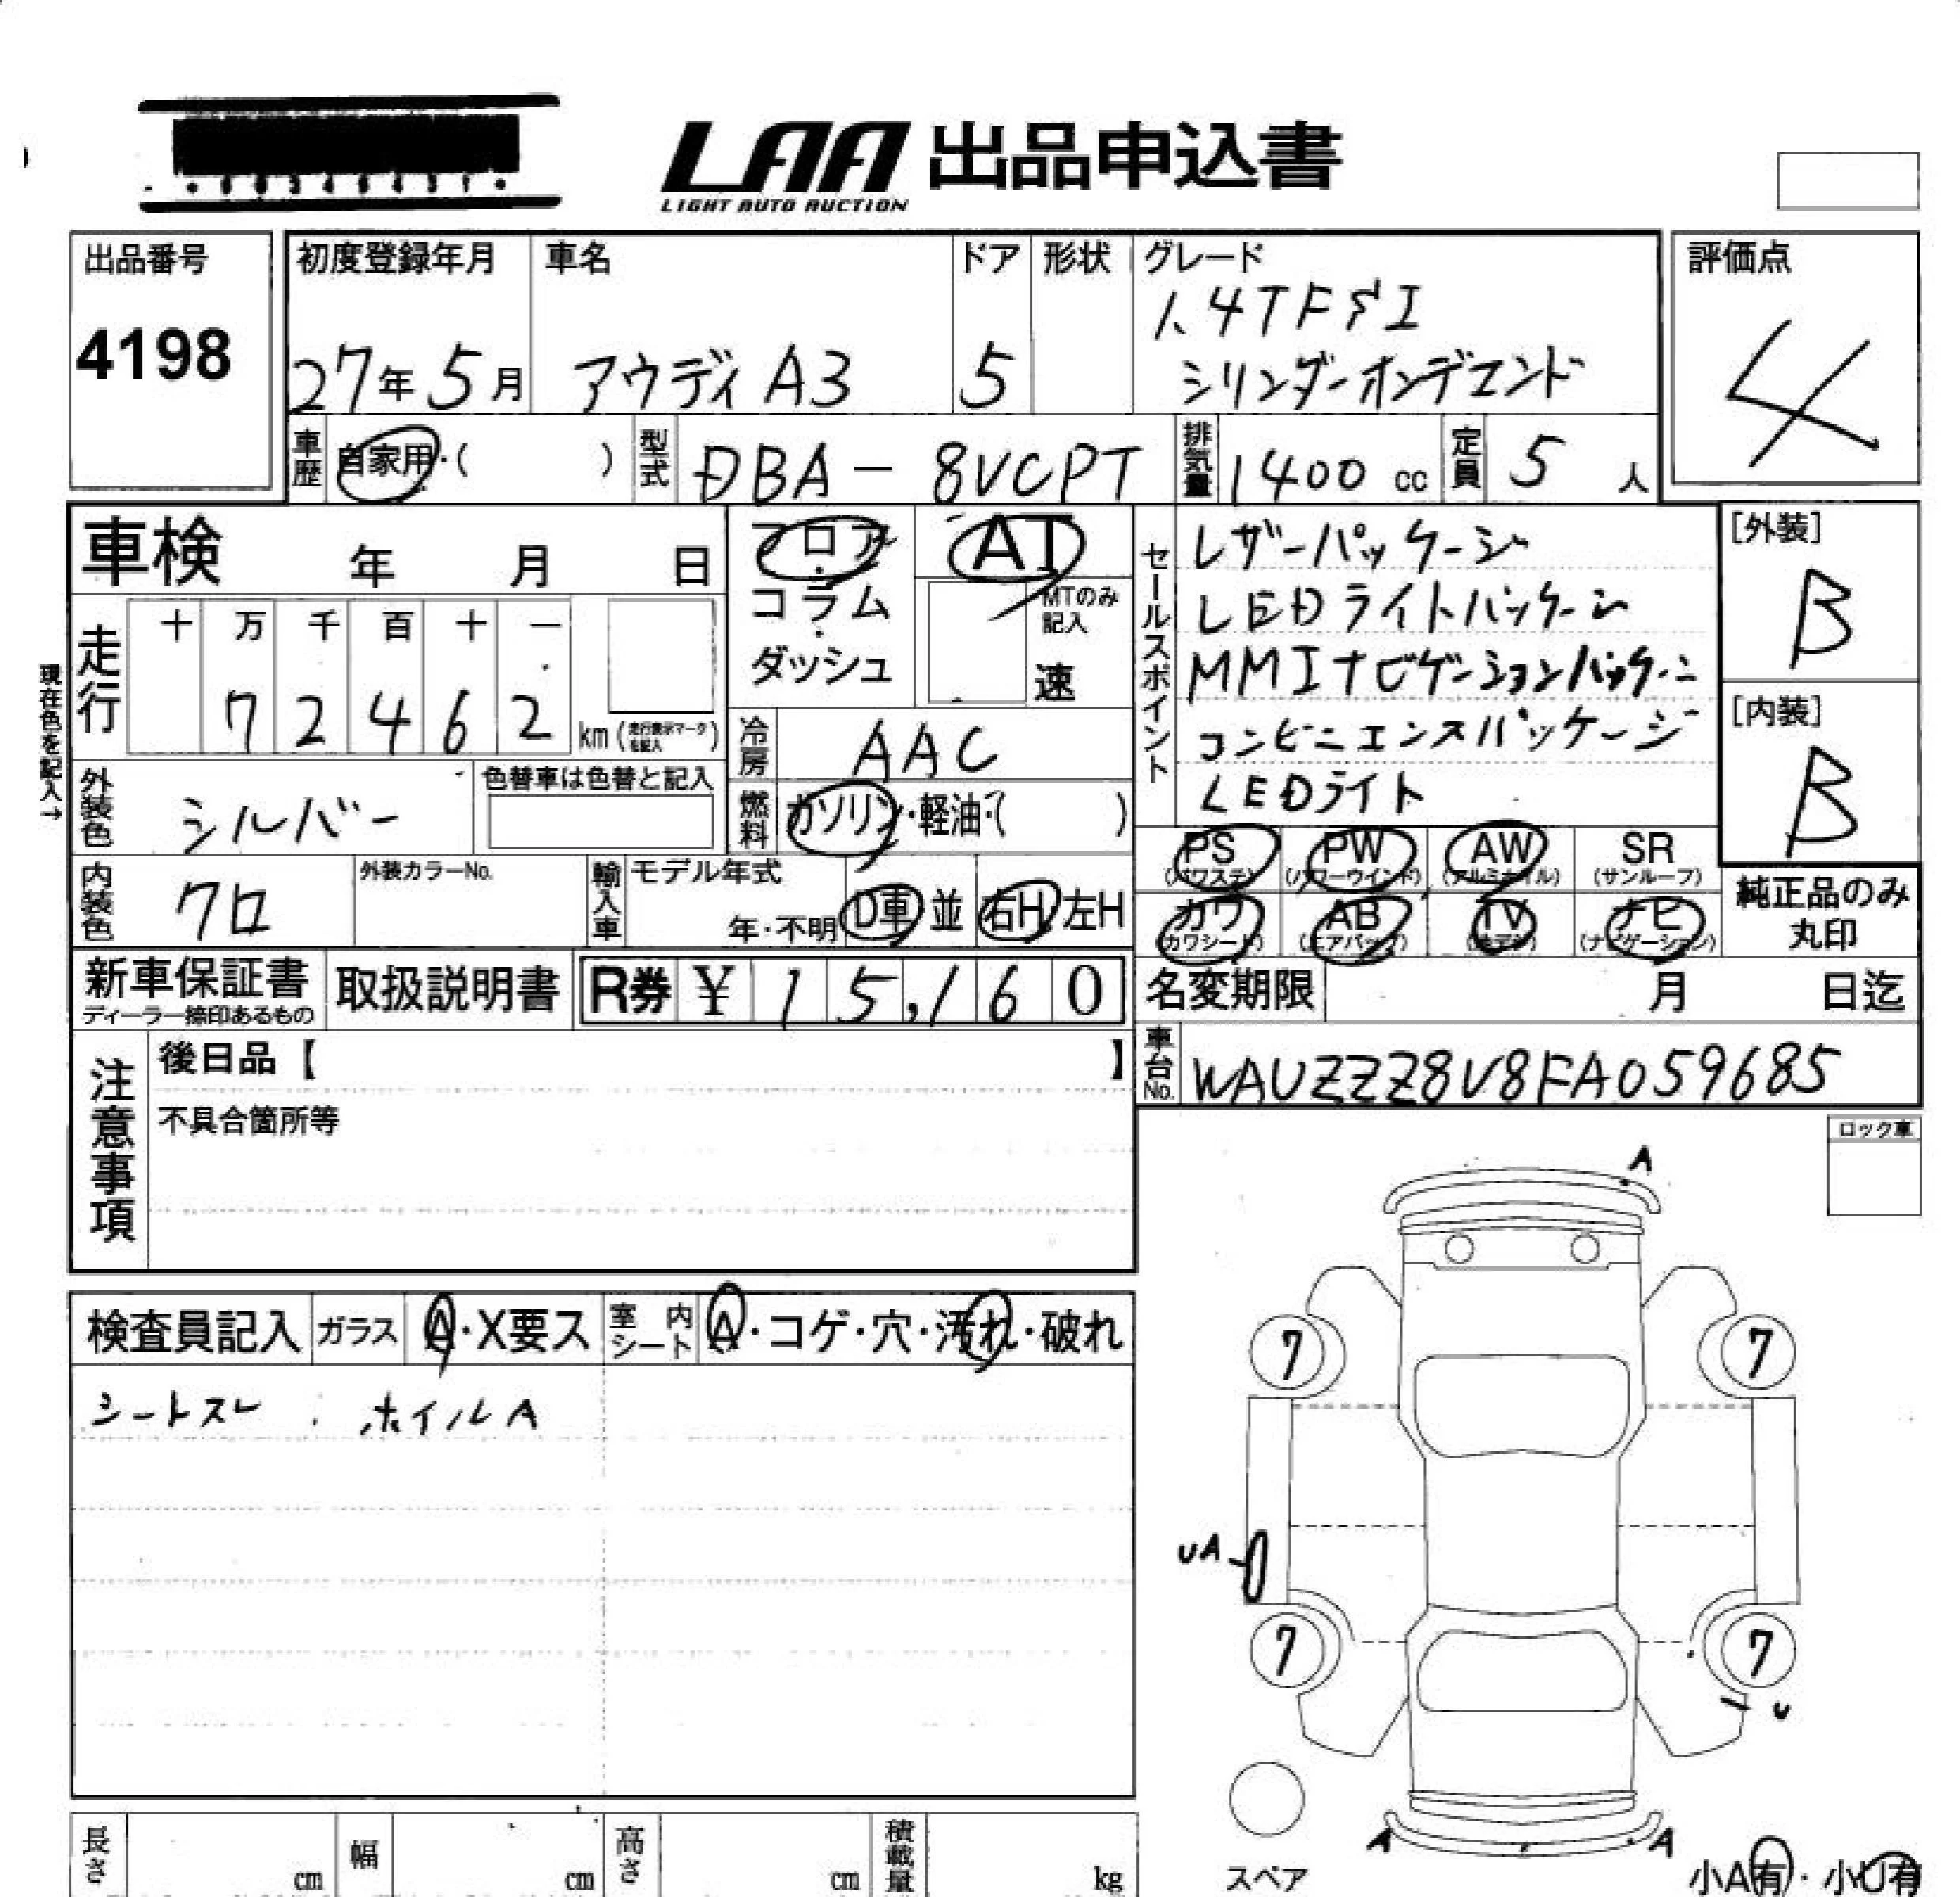 LAA 出品申込書
LIGHT AUTO AUCTION
出品番号
4198
初度登録年月
27年5月
車名
アウディ A3
ドア
5
形状
グレード
1.4TFSI
シリンダーオンデマンド
評価点
4
車歴
自家用・( )
型式
DBA-8VCPT
排気量
1400 cc
定員
5 人
車検 年 月 日
フロア・コラム・ダッシュ
AT
MTのみ記入
速
セールスポイント
レザーパッケージ
LEDライトパッケージ
MMIナビゲーションパッケージ
コンビニエンスパッケージ
LEDライト
[外装]
B
[内装]
B
現在色を記入→
走行
十 万 千 百 十 一
7 2 4 6 2
km (走行表示マークを記入)
冷房
AAC
外装色
シルバー
色替車は色替と記入
燃料
ガソリン・軽油・( )
PS (パワステ)
PW (パワーウインド)
AW (アルミホイル)
SR (サンルーフ)
カワ (カワシート)
AB (エアバッグ)
TV (地デジ)
ナビ (ナビゲーション)
純正品のみ
丸印
内装色
クロ
外装カラーNo.
輸入車
モデル年式
年・不明
D車 並
右H 左H
新車保証書
ディーラー捺印あるもの
取扱説明書
R券 ¥ 15,160
名変期限 月 日迄
車台No.
WAUZZZ8V8FA059685
注意事項
後日品【 】
不具合箇所等
ロック車
検査員記入
ガラス
A・X要ス
室内シート
A・コゲ・穴・汚れ・破れ
シートスレ ホイルA
A
7
7
UA
7
7
U
A
A
スペア
小A有・小U有
長さ cm
幅 cm
高さ cm
積載量 kg